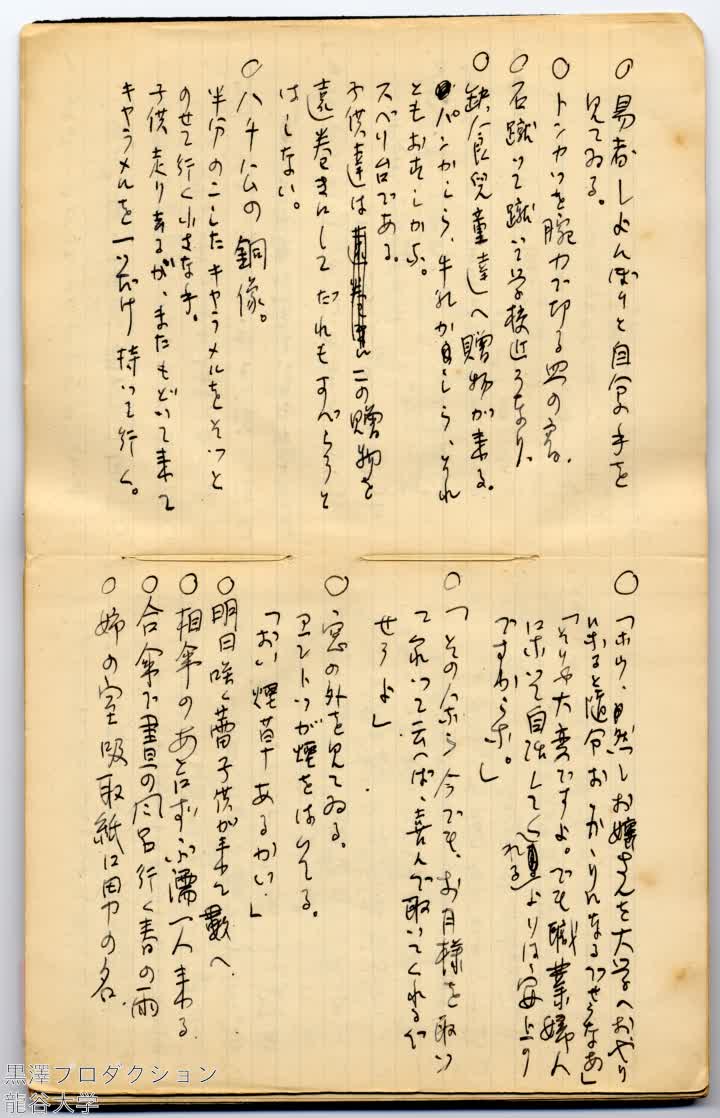 ○易者しよんぼりと自分の手を
見てゐる。
○トンカツを腕力で切る皿の音。
○石蹴って蹴って学校近うなり、
○欠食児童達へ贈物が来る。
パンかしら、牛乳かしら、それ
ともおすしかな。
スベリ台である。
子供達はこの贈物を
遠巻きにしてだれもすべらうと
はしない。
○ハチ公の銅像。
半分のこしたキャラメルをそっと
のせて行く小さな手。
子供走り去るが、またもどって来て
キャラメルを一つだけ持って行く。
○「ホウ、自然しお嬢さんを大学へおやり
になると随分おかゝりになるでせうなあ」
「そりや大変ですよ。でも職業婦人
になって自活してくれるよりは安上り
ですからな。」
○「その人なら今でも、お月様を取っ
て呉れって云へば、喜んで取ってくれる
せうよ」
○窓の外を見てゐる。
エントツが煙をはいてる。
「おい煙草あるかい。」
○明日咲く蕾子供が来て数へ
○相傘のあとにずぶ濡一人来る
○合傘で昼の風呂行く春の雨
○姉の室吸取紙に男の名
黒澤プロダクション
龍谷大学